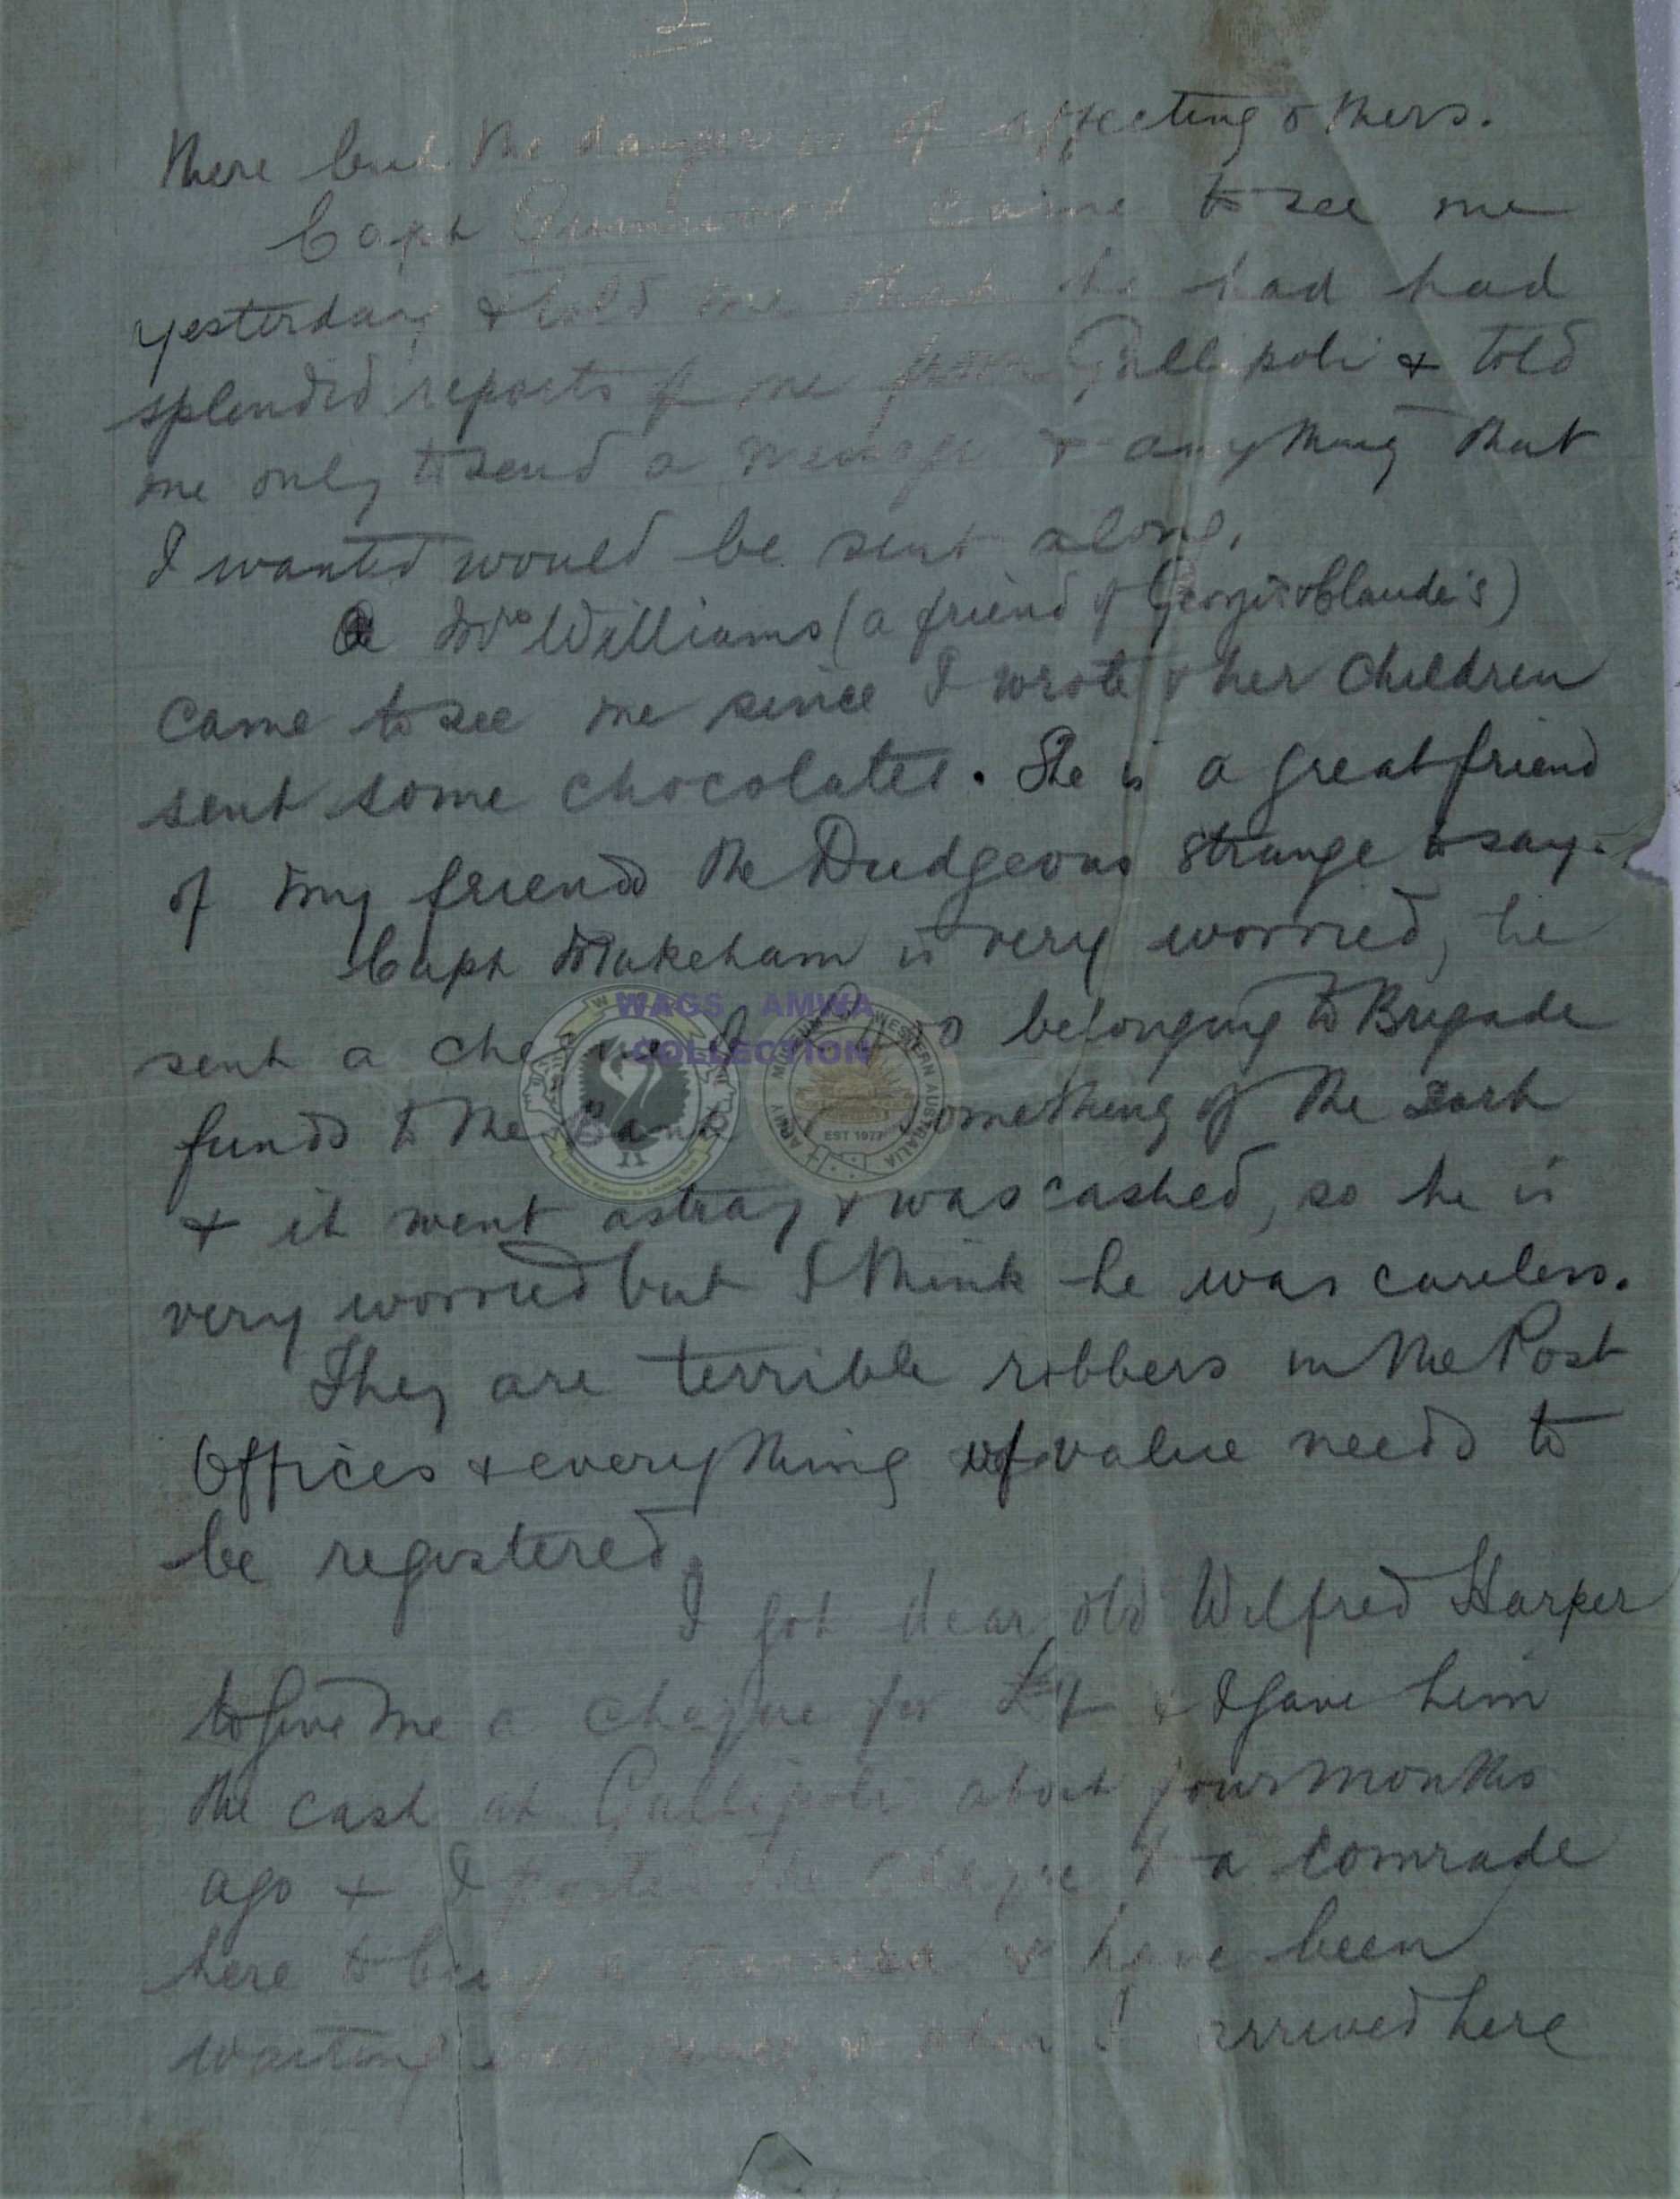 2
there but the danger is of affecting others.
Capt Greenwood came to see me
yesterday & told me that he had had
splendid reports of me from Gallipoli & told
me only to send a message & anything that
I wanted would be sent along.
A Mrs Williams (a friend of Georgie & Claude's)
came to see me since I wrote & her children
sent some chocolates. She is a great friend
of my friends the Dudgeons strange to say.
Capt Makeham is very worried, he
sent a cheque belonging to Brigade
funds to the Bank or something of the sort
& it went astray & was cashed, so he is
very worried but I think he was careless.
They are terrible robbers in the Post
Offices & everything of value needs to
be registered.
I got dear old Wilfred Harper
to give me a cheque for & I gave him
the cash at Gallipoli about four months
ago & I posted the cheque to a comrade
here to buy a camera & have been
waiting ever since, & when I arrived here
WAGS AMWA
COLLECTION
ARMY MUSEUM OF WESTERN AUSTRALIA
EST 1977